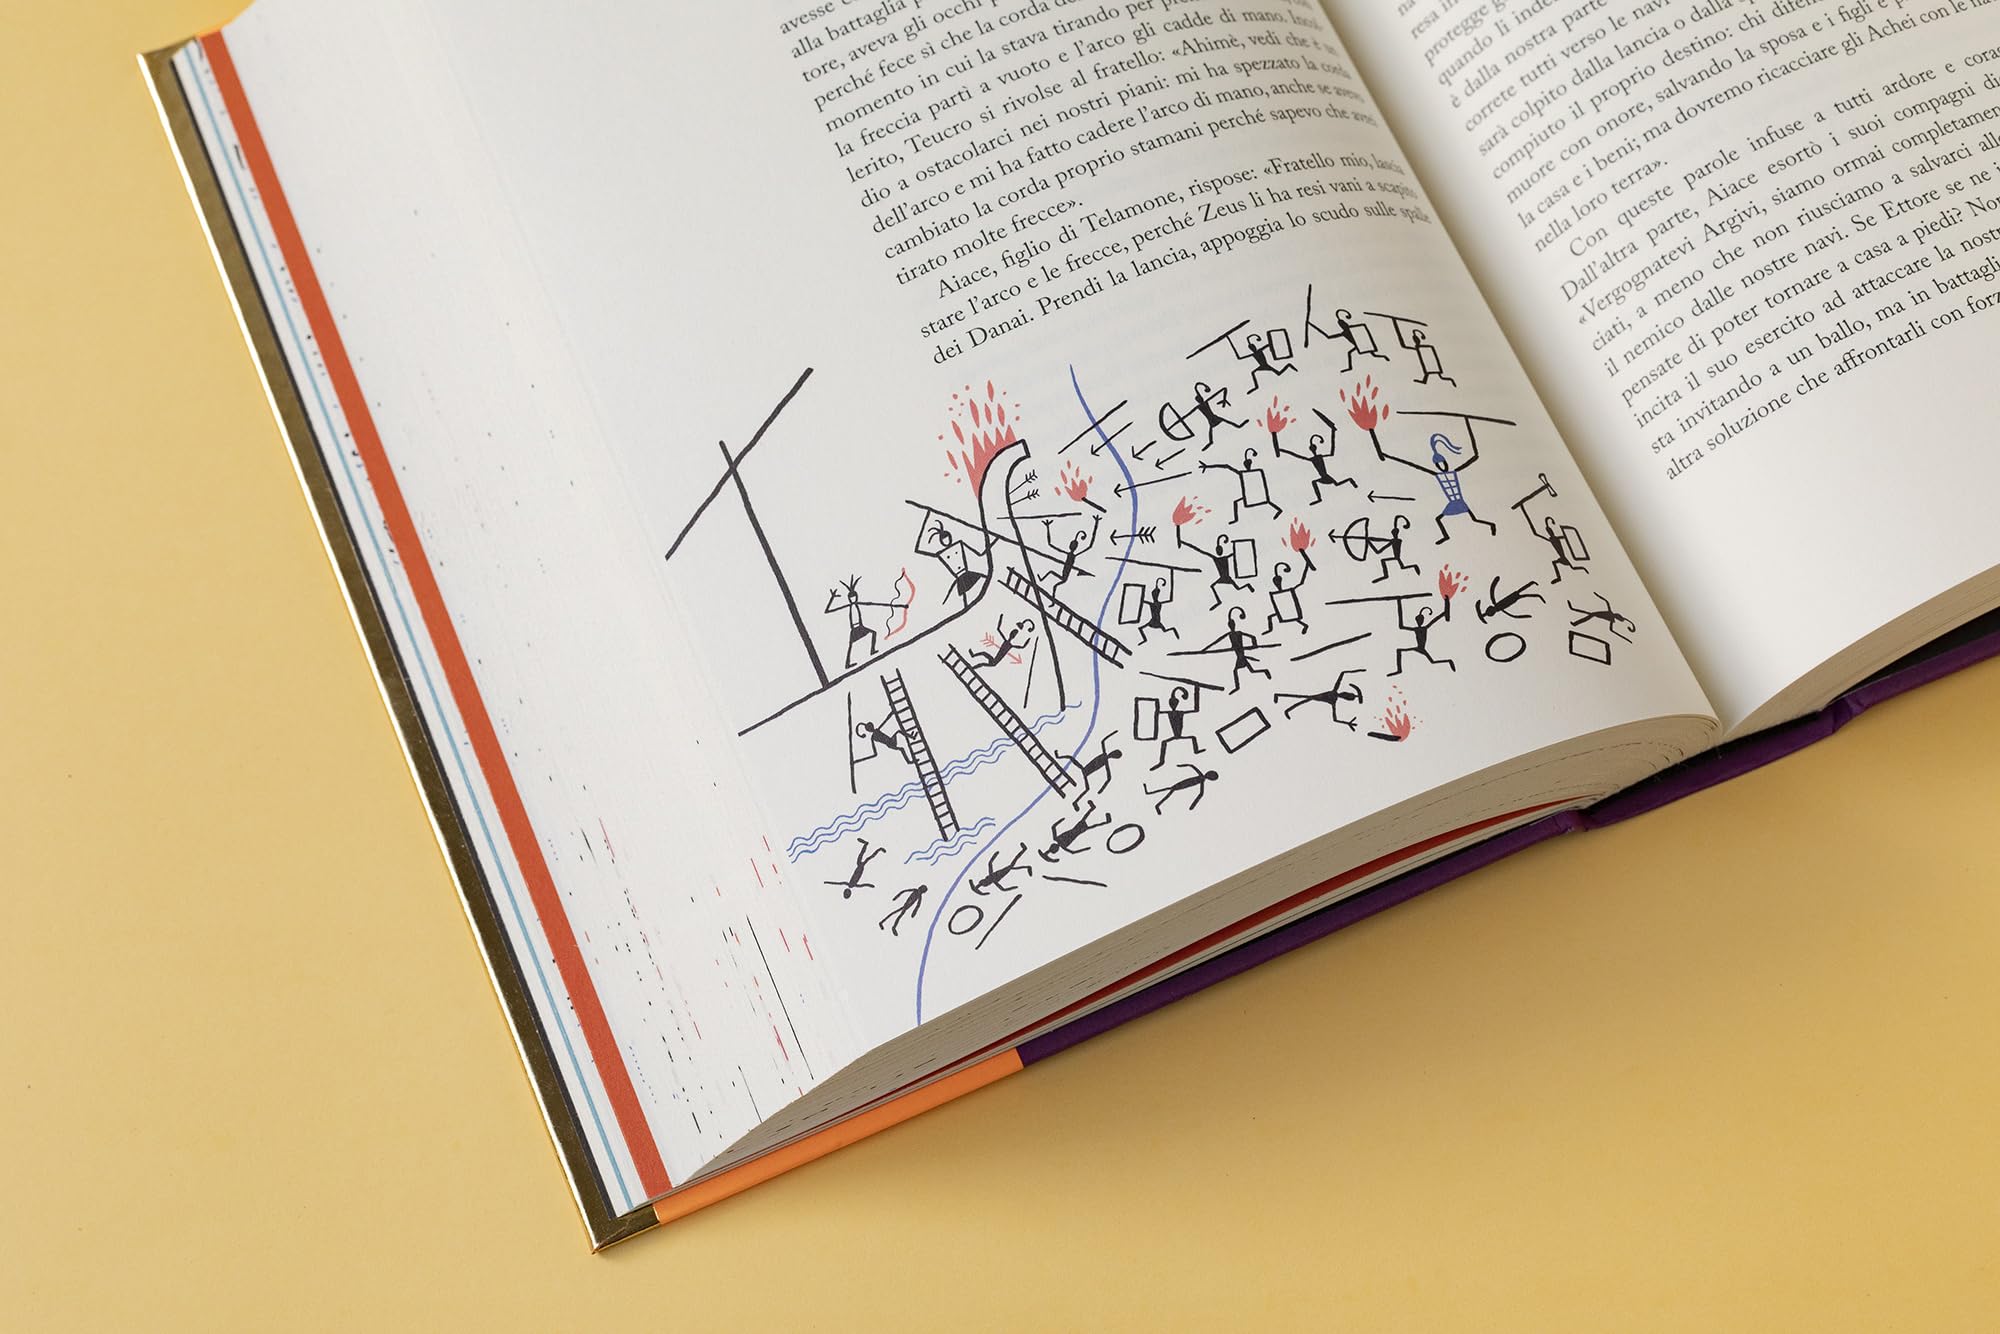 avesse
alla battaglia
tore, aveva gli occhi
perché fece sì che la corda
momento in cui la stava tirando per
la freccia partì a vuoto e l'arco gli cadde di mano.
lerito, Teucro si rivolse al fratello: «Ahimè, vedi che è un
dio a ostacolarci nei nostri piani: mi ha spezzato la corda
dell'arco e mi ha fatto cadere l'arco di mano, anche se avevo
cambiato la corda proprio stamani perché sapevo che avrei
tirato molte frecce».
Aiace, figlio di Telamone, rispose: «Fratello mio, lascia
stare l'arco e le frecce, perché Zeus li ha resi vani a scapito
dei Danai. Prendi la lancia, appoggia lo scudo sulle spalle
resa
protegge
quando li
è dalla nostra parte
correte tutti verso le navi
sarà colpito dalla lancia o dalla
compiuto il proprio destino: chi
muore con onore, salvando la sposa e i figli e
la casa e i beni; ma dovremo ricacciare gli Achei con le
nella loro terra».
Con queste parole infuse a tutti ardore e
Dall'altra parte, Aiace esortò i suoi compagni
«Vergognatevi Argivi, siamo ormai
ciati, a meno che non riusciamo a salvarci
il nemico dalle nostre navi. Se Ettore se ne
pensate di poter tornare a casa a piedi?
incita il suo esercito ad attaccare la
sta invitando a un ballo, ma in
altra soluzione che affrontarli con